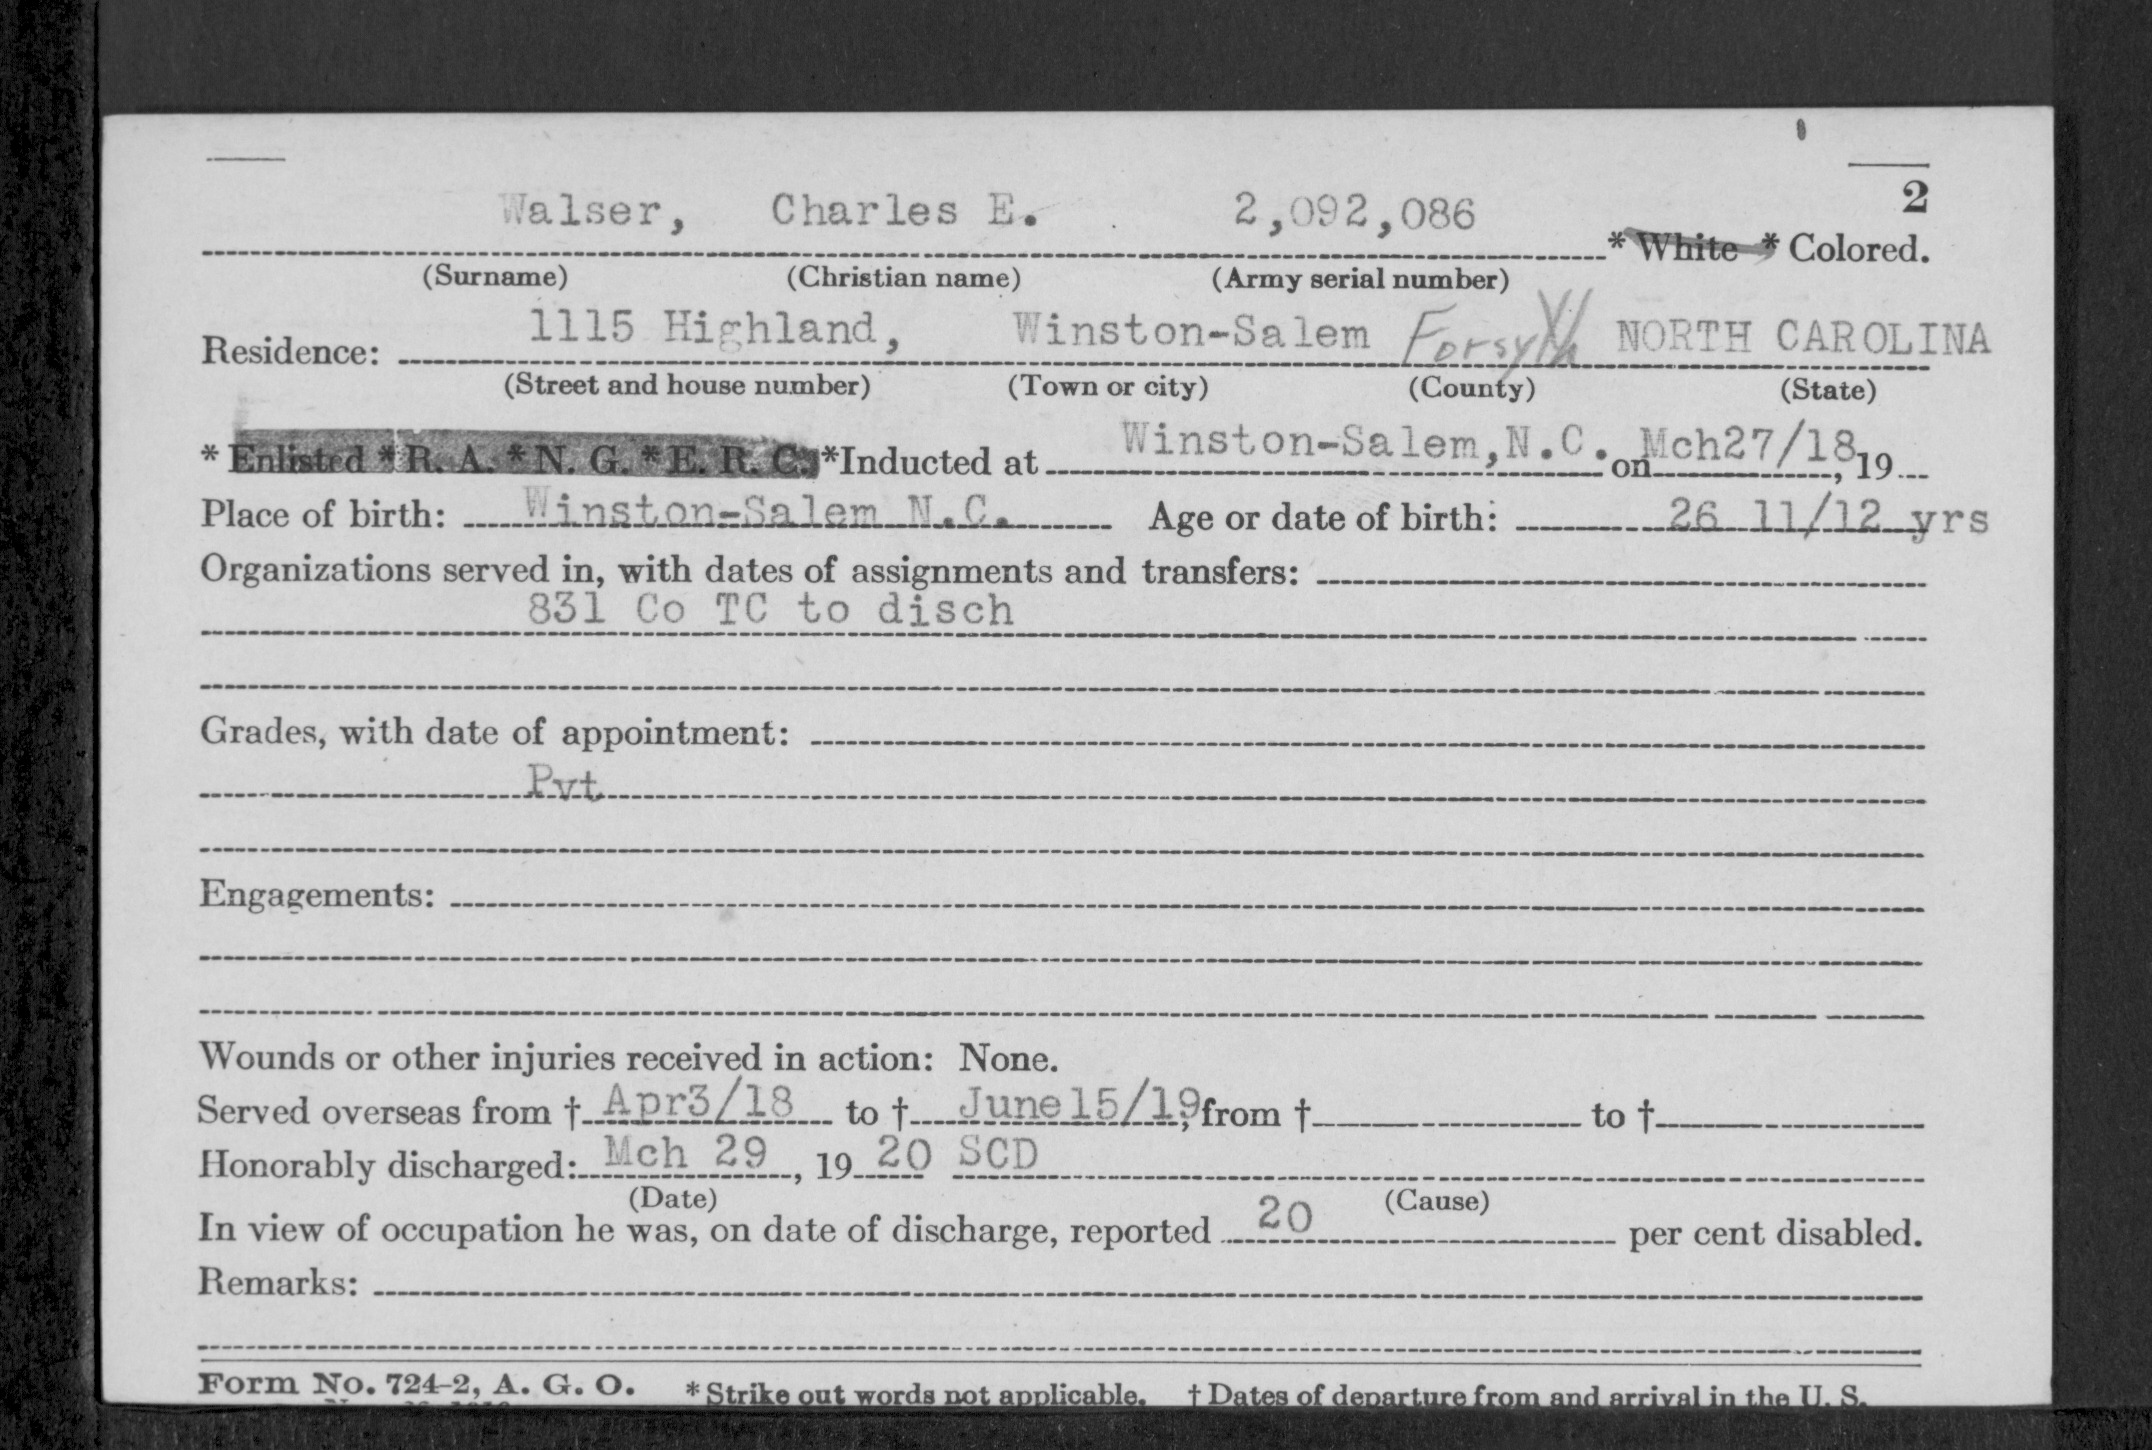 2
Walser, Charles E. 2,092,086 * White * Colored.
(Surname) (Christian name) (Army serial number)
Residence: 1115 Highland, Winston-Salem Forsyth NORTH CAROLINA
(Street and house number) (Town or city) (County) (State)
* Enlisted * R. A. * N. G. * E. R. C. *Inducted at Winston-Salem,N.C. on Mch27/18, 19
Place of birth: Winston-Salem N.C. Age or date of birth: 26 11/12 yrs
Organizations served in, with dates of assignments and transfers:
831 Co TC to disch
Grades, with date of appointment:
Pvt
Engagements:
Wounds or other injuries received in action: None.
Served overseas from † Apr3/18 to † June15/19, from † to †
Honorably discharged: Mch 29, 1920 SCD
(Date) (Cause)
In view of occupation he was, on date of discharge, reported 20 per cent disabled.
Remarks:
Form No. 724-2, A. G. O. * Strike out words not applicable. † Dates of departure from and arrival in the U. S.